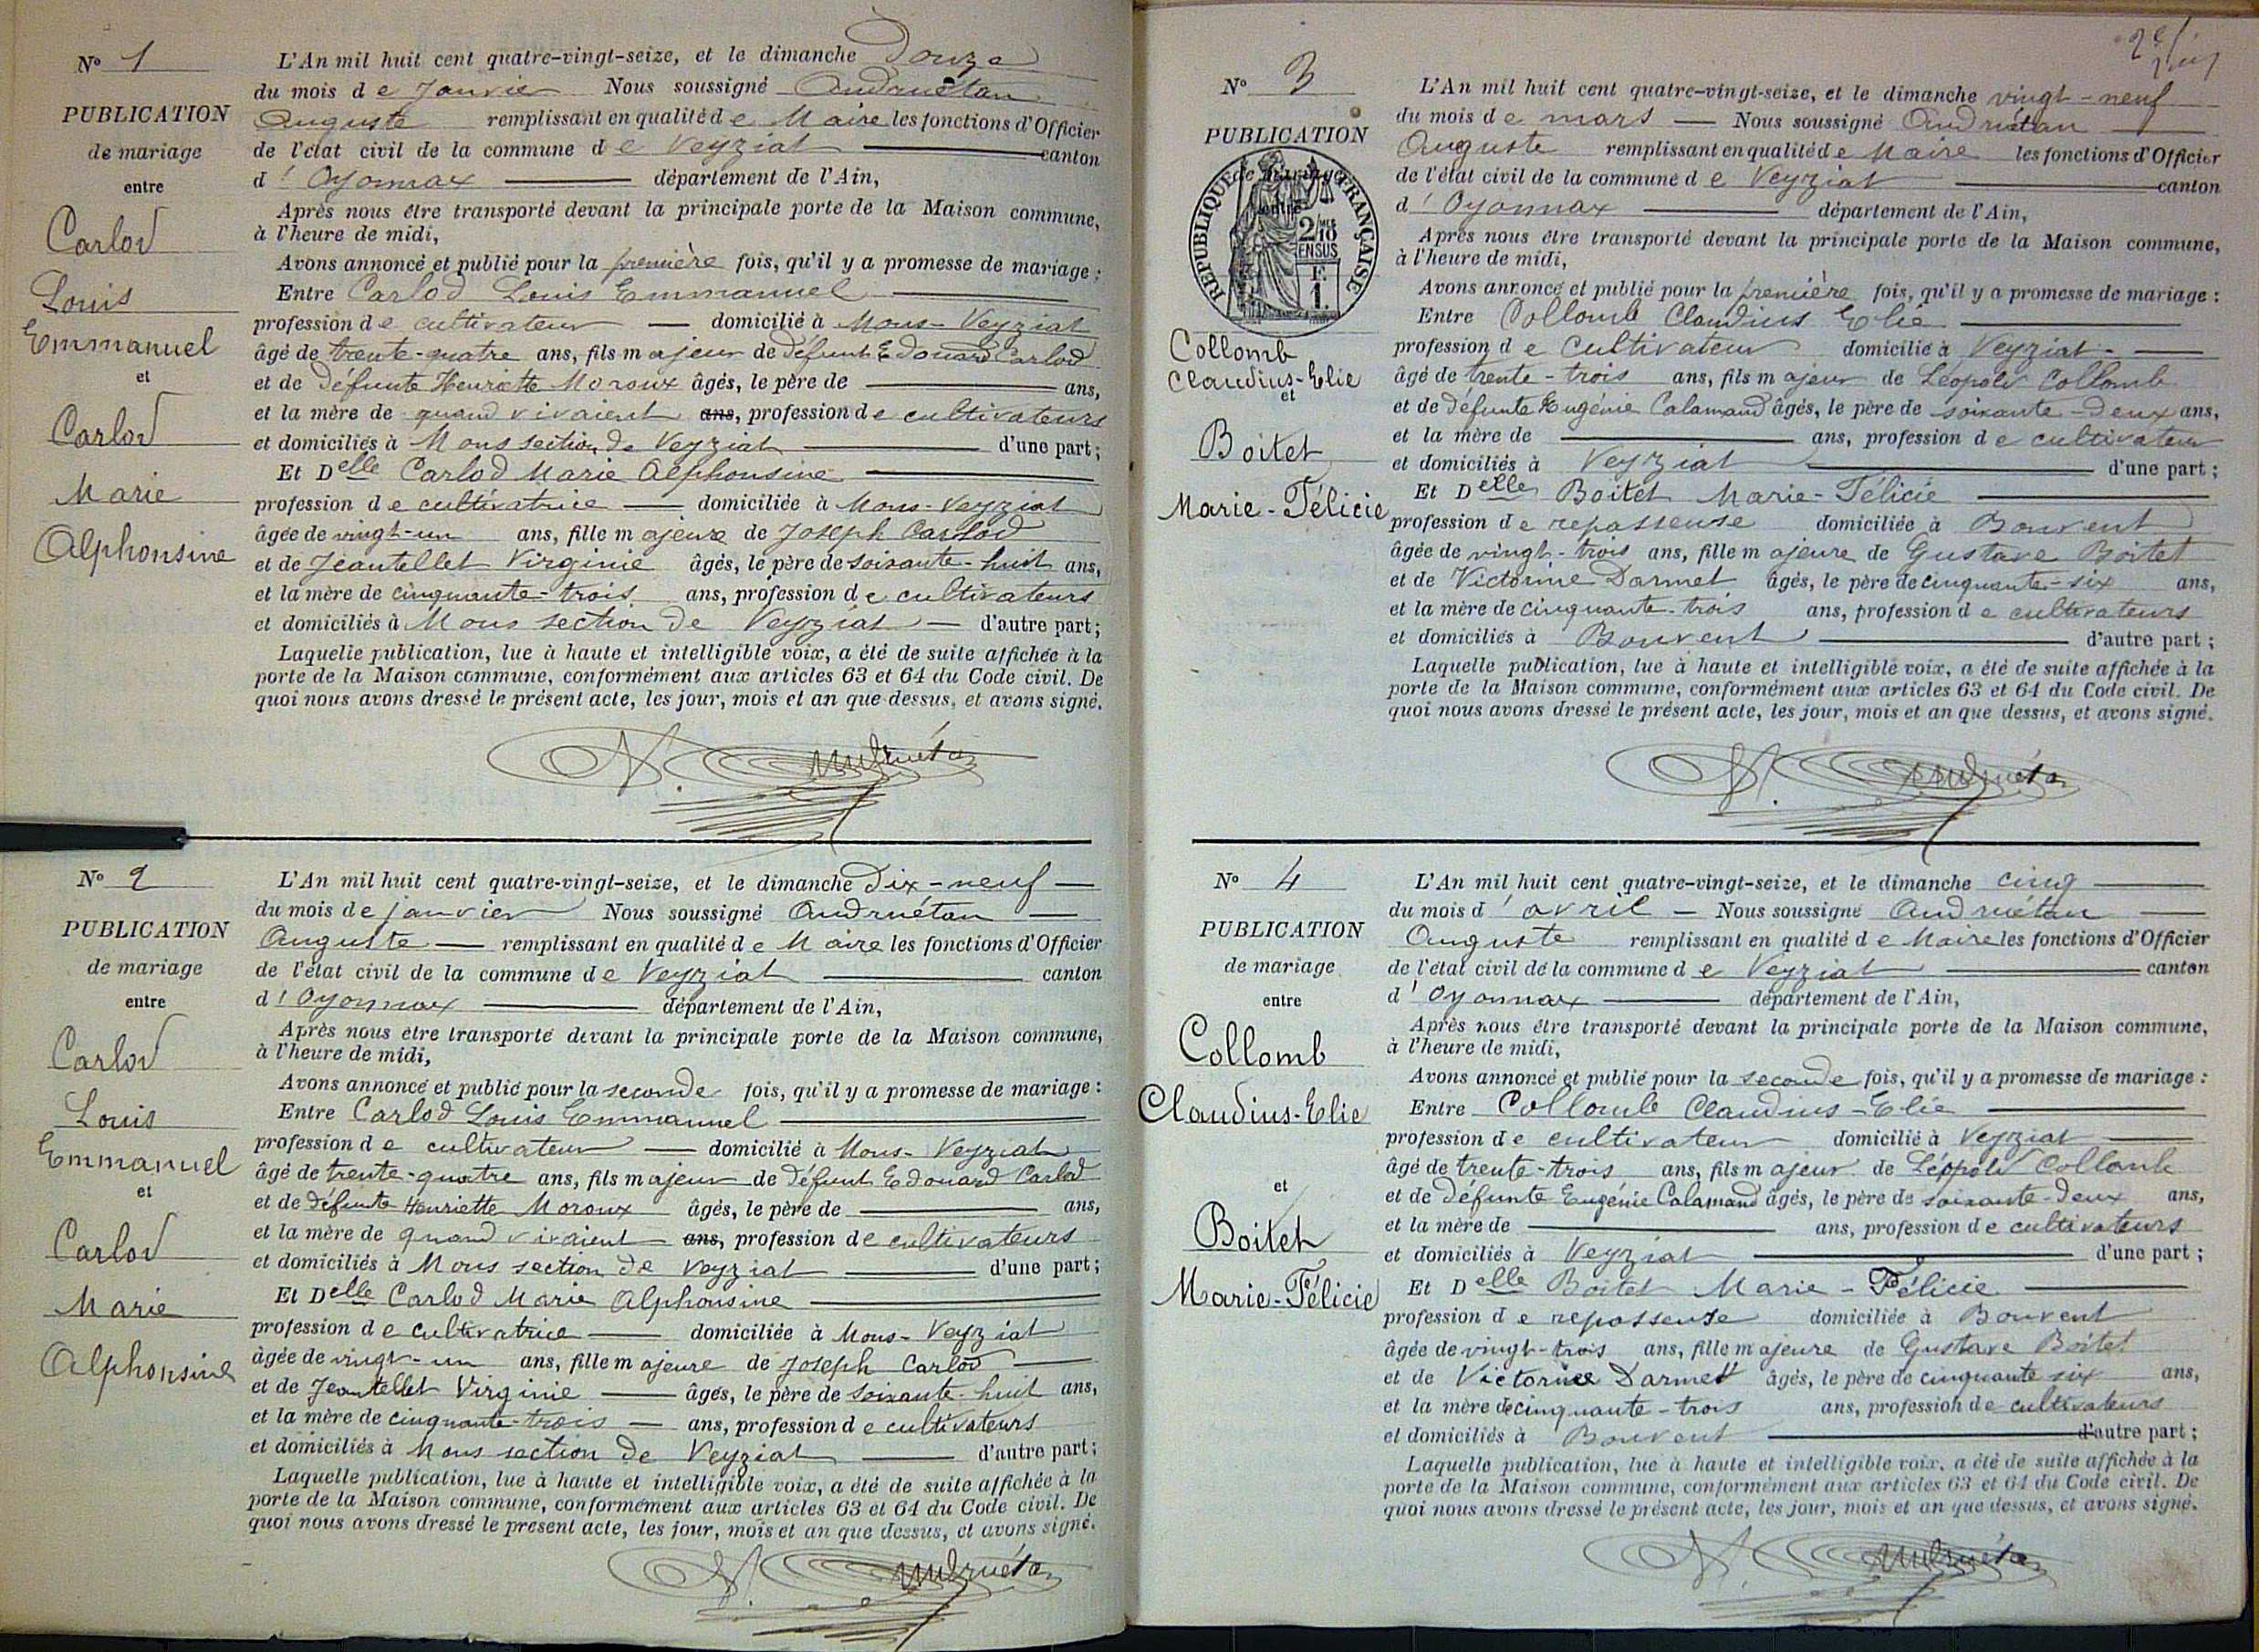 N° 1
PUBLICATION
de mariage
entre
Carlod
Louis
Emmanuel
et
Carlod
Marie
Alphonsine
L'An mil huit cent quatre-vingt-seize, et le dimanche Douze
du mois de Janvier Nous soussigné Andruétan
Auguste remplissant en qualité de Maire les fonctions d'Officier
de l'état civil de la commune de Veyziat canton
d'Oyonnax département de l'Ain,
Après nous être transporté devant la principale porte de la Maison commune,
à l'heure de midi,
Avons annoncé et publié pour la première fois, qu'il y a promesse de mariage :
Entre Carlod Louis Emmanuel
profession de cultivateur domicilié à Mons-Veyziat
âgé de trente-quatre ans, fils majeur de défunt Edouard Carlod
et de Défunte Henriette Moroux âgés, le père de ans,
et la mère de quand vivaient ans, profession de cultivateurs
et domiciliés à Mons section de Veyziat d'une part ;
Et Delle Carlod Marie Alphonsine
profession de cultivatrice domiciliée à Mons-Veyziat
âgée de vingt-un ans, fille majeure de Joseph Carlod
et de Jeantellet Virginie âgés, le père de soixante-huit ans,
et la mère de cinquante-trois ans, profession de cultivateurs
et domiciliés à Mons section de Veyziat d'autre part ;
Laquelle publication, lue à haute et intelligible voix, a été de suite affichée à la
porte de la Maison commune, conformément aux articles 63 et 64 du Code civil. De
quoi nous avons dressé le présent acte, les jour, mois et an que dessus, et avons signé.
Andruétan
N° 2
PUBLICATION
de mariage
entre
Carlod
Louis
Emmanuel
et
Carlod
Marie
Alphonsine
L'An mil huit cent quatre-vingt-seize, et le dimanche Dix-neuf
du mois de janvier Nous soussigné Andruétan
Auguste remplissant en qualité de Maire les fonctions d'Officier
de l'état civil de la commune de Veyziat canton
d'Oyonnax département de l'Ain,
Après nous être transporté devant la principale porte de la Maison commune,
à l'heure de midi,
Avons annoncé et publié pour la seconde fois, qu'il y a promesse de mariage :
Entre Carlod Louis Emmanuel
profession de cultivateur domicilié à Mons-Veyziat
âgé de trente-quatre ans, fils majeur de défunt Edouard Carlod
et de défunte Henriette Moroux âgés, le père de ans,
et la mère de quand vivaient ans, profession de cultivateurs
et domiciliés à Mons section de Veyziat d'une part ;
Et Delle Carlod Marie Alphonsine
profession de cultivatrice domiciliée à Mons-Veyziat
âgée de vingt-un ans, fille majeure de Joseph Carlod
et de Jeantellet Virginie âgés, le père de soixante-huit ans,
et la mère de cinquante-trois ans, profession de cultivateurs
et domiciliés à Mons section de Veyziat d'autre part ;
Laquelle publication, lue à haute et intelligible voix, a été de suite affichée à la
porte de la Maison commune, conformément aux articles 63 et 64 du Code civil. De
quoi nous avons dressé le présent acte, les jour, mois et an que dessus, et avons signé.
Andruétan
N° 3
PUBLICATION
de mariage
entre
RÉPUBLIQUE FRANÇAISE
2/10 EN SUS
F.
1.
Collomb
Claudius-Elie
et
Boitet
Marie-Félicie
L'An mil huit cent quatre-vingt-seize, et le dimanche vingt-neuf
du mois de mars Nous soussigné Andruétan
Auguste remplissant en qualité de Maire les fonctions d'Officier
de l'état civil de la commune de Veyziat canton
d'Oyonnax département de l'Ain,
Après nous être transporté devant la principale porte de la Maison commune,
à l'heure de midi,
Avons annoncé et publié pour la première fois, qu'il y a promesse de mariage :
Entre Collomb Claudius Elie
profession de cultivateur domicilié à Veyziat
âgé de trente-trois ans, fils majeur de Léopold Collomb
et de défunte Eugénie Calamand âgés, le père de soixante-deux ans,
et la mère de ans, profession de cultivateur
et domiciliés à Veyziat d'une part ;
Et Delle Boitet Marie-Félicie
profession de repasseuse domiciliée à Bouvent
âgée de vingt-trois ans, fille majeure de Gustave Boitet
et de Victorine Darmet âgés, le père de cinquante-six ans,
et la mère de cinquante-trois ans, profession de cultivateurs
et domiciliés à Bouvent d'autre part ;
Laquelle publication, lue à haute et intelligible voix, a été de suite affichée à la
porte de la Maison commune, conformément aux articles 63 et 64 du Code civil. De
quoi nous avons dressé le présent acte, les jour, mois et an que dessus, et avons signé.
Andruétan
N° 4
PUBLICATION
de mariage
entre
Collomb
Claudius-Elie
et
Boitet
Marie-Félicie
L'An mil huit cent quatre-vingt-seize, et le dimanche cinq
du mois d'avril Nous soussigné Andruétan
Auguste remplissant en qualité de Maire les fonctions d'Officier
de l'état civil de la commune de Veyziat canton
d'Oyonnax département de l'Ain,
Après nous être transporté devant la principale porte de la Maison commune,
à l'heure de midi,
Avons annoncé et publié pour la seconde fois, qu'il y a promesse de mariage :
Entre Collomb Claudius-Elie
profession de cultivateur domicilié à Veyziat
âgé de trente-trois ans, fils majeur de Léopold Collomb
et de défunte Eugénie Calamand âgés, le père de soixante-deux ans,
et la mère de ans, profession de cultivateurs
et domiciliés à Veyziat d'une part ;
Et Delle Boitet Marie-Félicie
profession de repasseuse domiciliée à Bouvent
âgée de vingt-trois ans, fille majeure de Gustave Boitet
et de Victorine Darmet âgés, le père de cinquante six ans,
et la mère de cinquante-trois ans, profession de cultivateurs
et domiciliés à Bouvent d'autre part ;
Laquelle publication, lue à haute et intelligible voix, a été de suite affichée à la
porte de la Maison commune, conformément aux articles 63 et 64 du Code civil. De
quoi nous avons dressé le présent acte, les jour, mois et an que dessus, et avons signé.
Andruétan